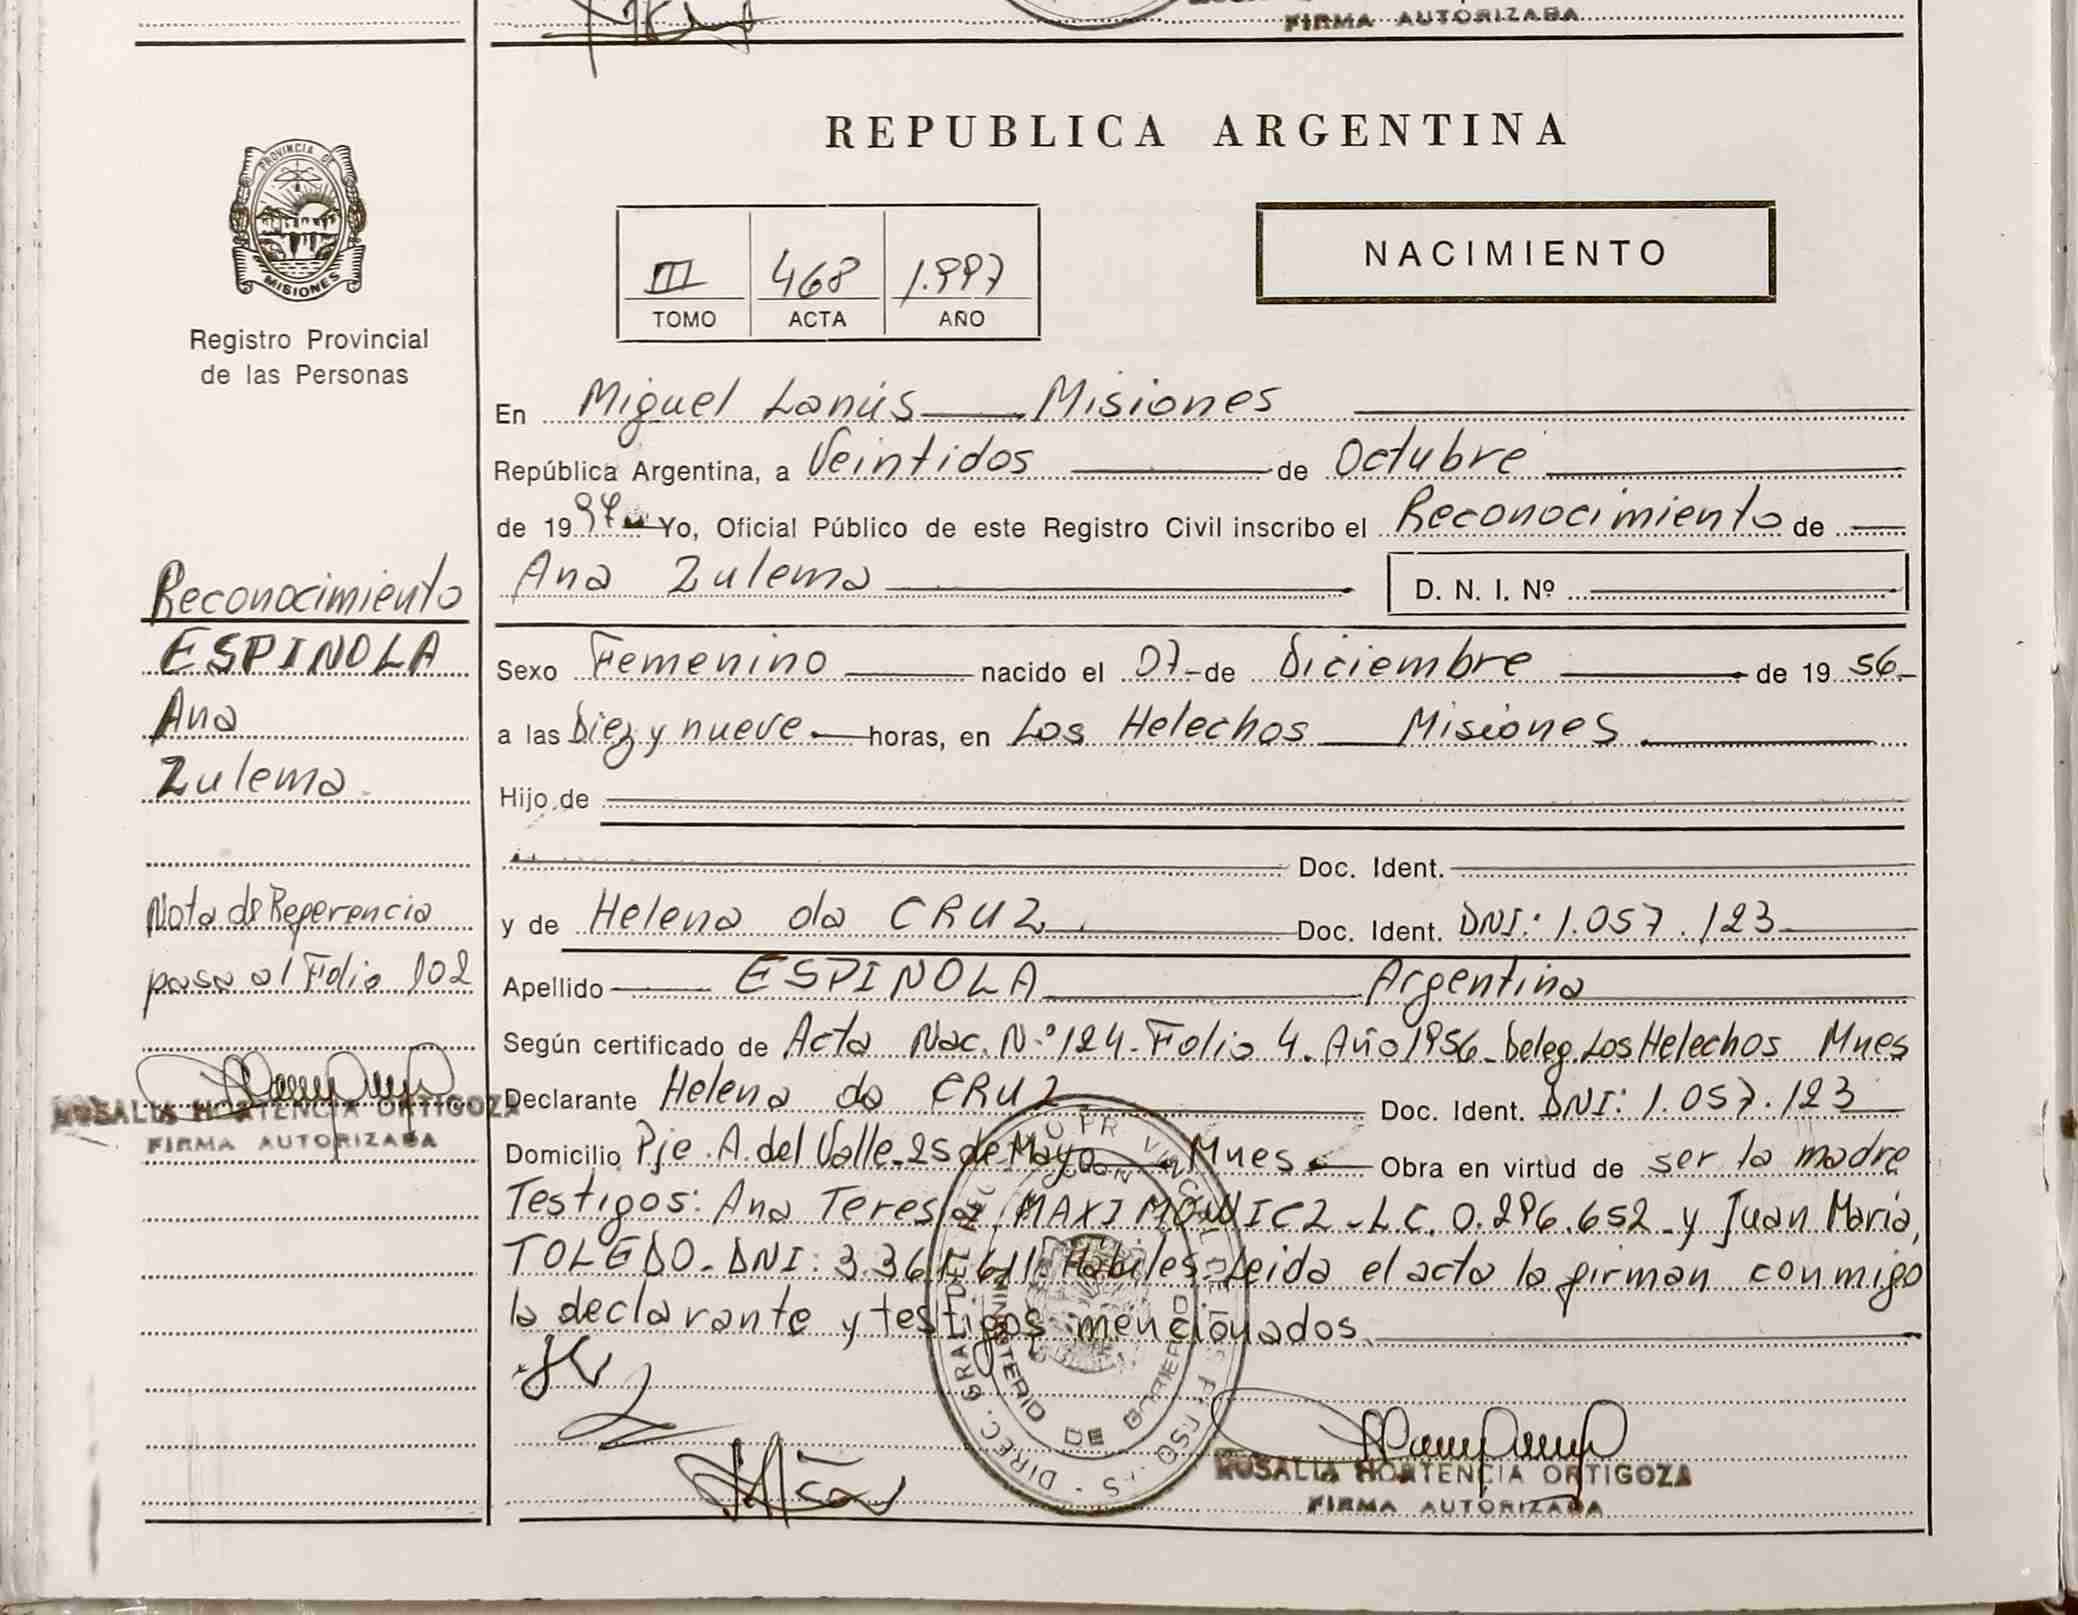 FIRMA AUTORIZADA
REPUBLICA ARGENTINA
PROVINCIA DE
MISIONES
Registro Provincial
de las Personas
III 468 1.997
TOMO ACTA AÑO
NACIMIENTO
En Miguel Lanús Misiones
República Argentina, a Veintidos de Octubre
de 1997 Yo, Oficial Público de este Registro Civil inscribo el Reconocimiento de
Ana Zulema D. N. I. Nº
Reconocimiento
ESPINOLA
Ana
Zulema
Sexo Femenino nacido el 07 de Diciembre de 1956
a las Diez y nueve horas, en Los Helechos Misiones
Hijo de
Doc. Ident.
y de Helena da CRUZ Doc. Ident. DNI: 1.057.123
Nota de Referencia
pasa al Folio 102
Apellido ESPINOLA Argentina
Según certificado de Acta Nac. N.º 124. Folio 4. Año 1956. Deleg. Los Helechos Mnes
Declarante Helena da CRUZ Doc. Ident. DNI: 1.057.123
ROSALIA HORTENCIA ORTIGOZA
FIRMA AUTORIZADA
Domicilio Pje. A. del Valle. 25 de Mayo Mnes Obra en virtud de ser la madre
Testigos: Ana Teresa MAXIMOWICZ - L.C. 0.296.652 y Juan María,
TOLEDO. DNI: Hábiles Leida el acta la firman conmigo
la declarante y testigos mencionados
DIREC. GRAL. DEL
MINISTERIO DE GOBIERNO
ROSALIA HORTENCIA ORTIGOZA
FIRMA AUTORIZADA